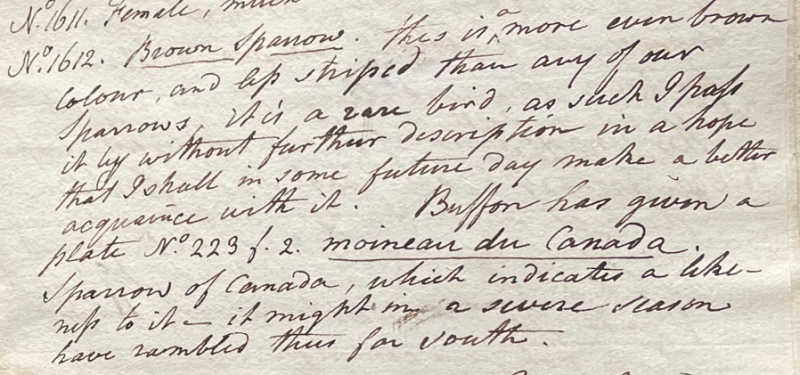 No. 1611. Female, much
No. 1612. Brown Sparrow. this is a more even brown
colour, and less striped than any of our
Sparrows, it is a rare bird, as such I pass
it by without further description in a hope
that I shall in some future day make a better
acquaince with it. Buffon has given a
plate No. 223 f. 2. moineau du Canada.
Sparrow of Canada, which indicates a like-
ness to it – it might in a severe season
have rambled thus far south.